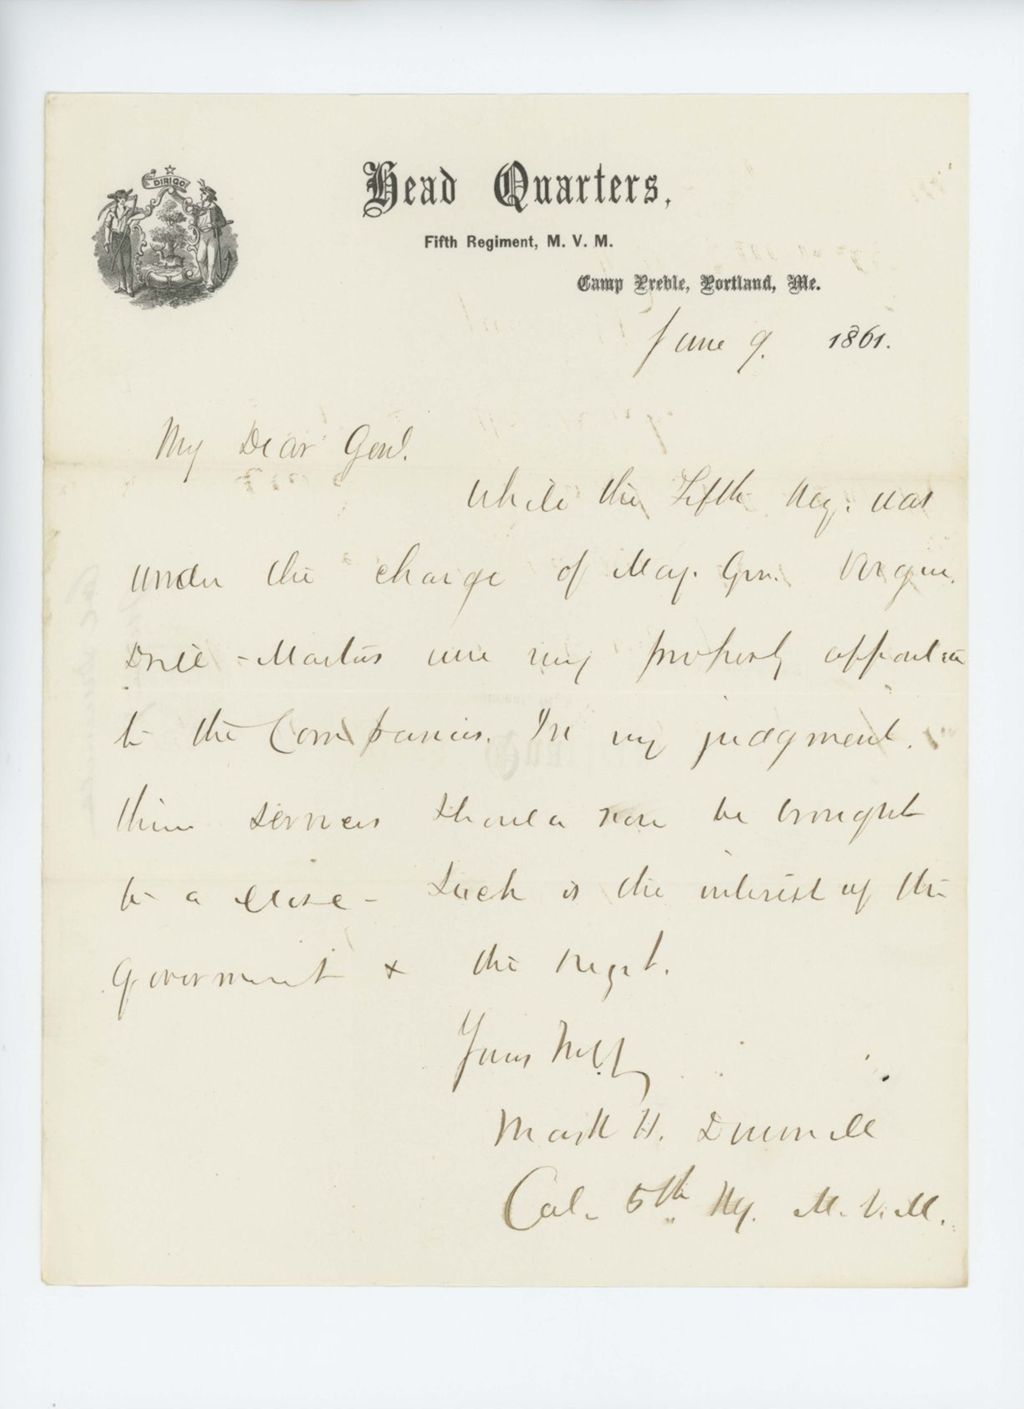 DIRIGO
Head Quarters,
Fifth Regiment, M. V. M.
Camp Preble, Portland, Me.
June 9. 1861.
My Dear Genl.
While the Fifth Reg. was
under the charge of Maj. Gen. Virgin.
Drill-Masters were very properly appointed
to the Companies. In my judgment.
their services should now be brought
to a close - Such is the interest of the
Government & the Regt.
Yours
Mark H. Dunnell
Col. 5th Reg. M. V. M.